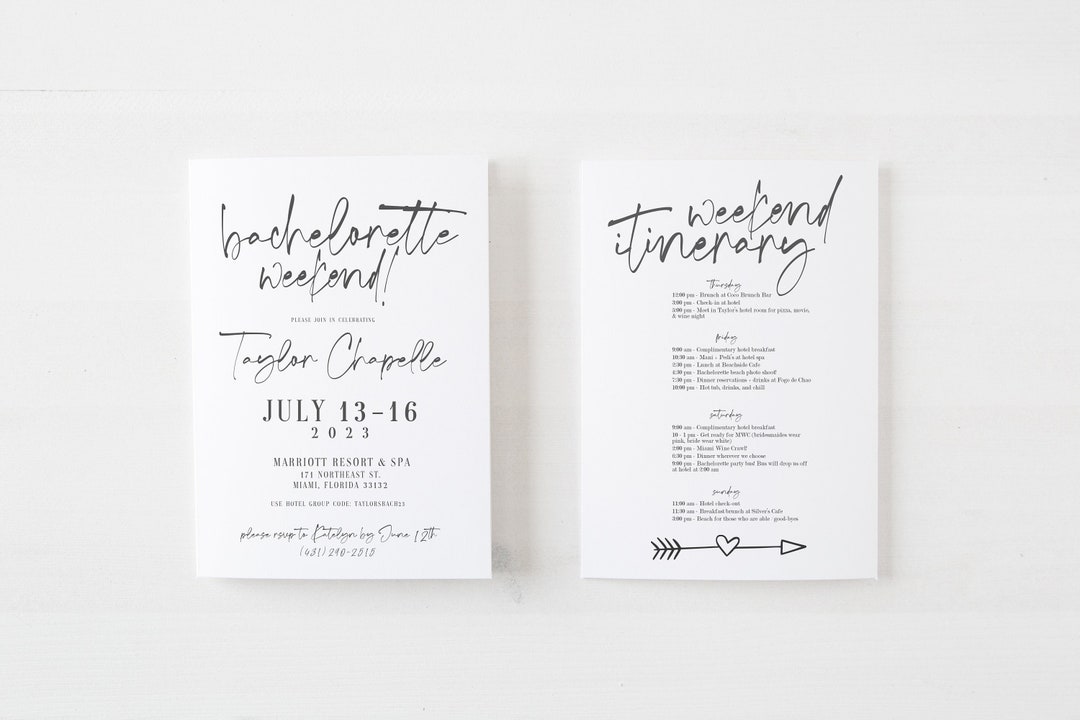 bachelorette
weekend!
PLEASE JOIN IN CELEBRATING
Taylor Chapelle
JULY 13-16
2023
MARRIOTT RESORT & SPA
171 NORTHEAST ST.
MIAMI, FLORIDA 33132
USE HOTEL GROUP CODE: TAYLORSBACH23
please rsvp to Katelyn by June 12th
(431) 290-2515
weekend
itinerary
thursday
12:00 pm - Brunch at Coco Brunch Bar
3:00 pm - Check-in at hotel
5:00 pm - Meet in Taylor's hotel room for pizza, movie,
& wine night
friday
9:00 am - Complimentary hotel breakfast
10:30 am - Mani + Pedi's at hotel spa
2:30 pm - Lunch at Beachside Cafe
4:30 pm - Bachelorette beach photo shoot!
7:30 pm - Dinner reservations + drinks at Fogo de Chao
10:00 pm - Hot tub, drinks, and chill
saturday
9:00 am - Complimentary hotel breakfast
10 - 1 pm - Get ready for MWC (bridesmaides wear
pink, bride wear white)
2:00 pm - Miami Wine Crawl!
6:30 pm - Dinner wherever we choose
9:00 pm - Bachelorette party bus! Bus will drop us off
at hotel at 2:00 am
sunday
11:00 am - Hotel check-out
11:30 am - Breakfast/brunch at Silver's Cafe
3:00 pm - Beach for those who are able / good-byes